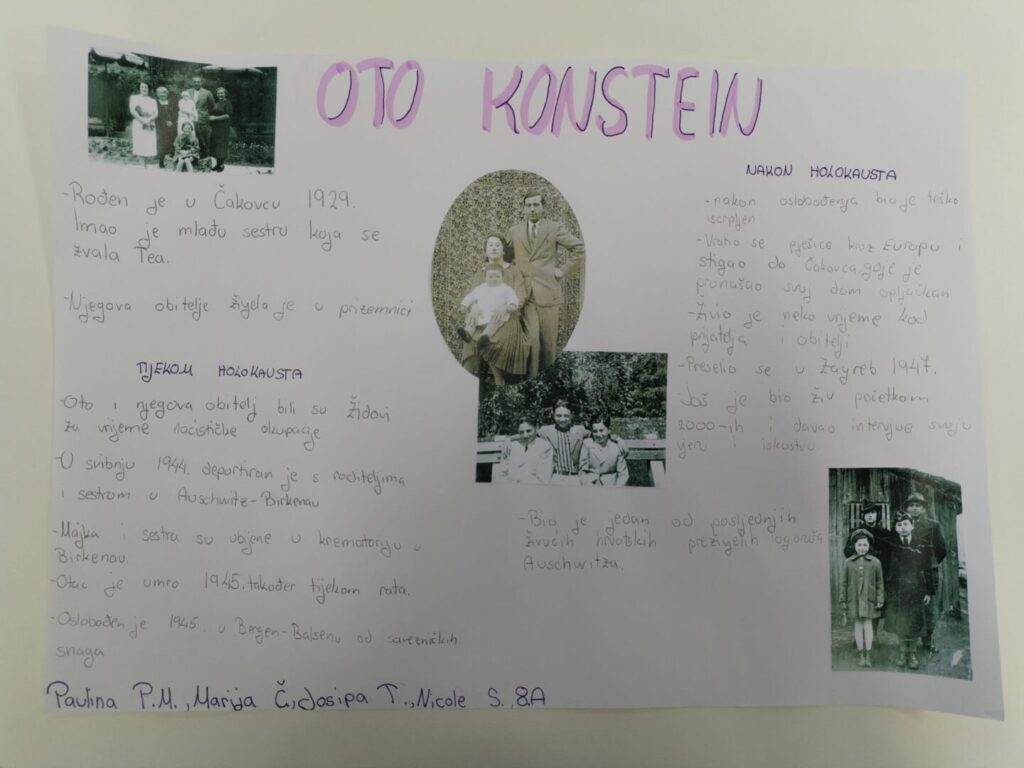 OTO KONSTEIN
-Rođen je u Čakovcu 1929.
Imao je mlađu sestru koja se
zvala Tea.
-Njegova obitelje živjela je u prizemnici
TIJEKOM HOLOKAUSTA
-Oto i njegova obitelj bili su Židovi
za vrijeme nacističke okupacije
-U svibnju 1944. deportiran je s roditeljima
i sestrom u Auschwitz-Birkenau
-Majka i sestra su ubijene u krematoriju u
Birkenau.
-Otac je umro 1945. također tijekom rata.
-Oslobođen je 1945. u Bergen-Balsenu od savezničkih
snaga
-Bio je jedan od posljednjih
živućih hrvatskih preživjelih logoraša
Auschwitza.
NAKON HOLOKAUSTA
-nakon oslobođenja bio je teško
iscrpljen
-Vratio se pješice kroz Europu i
stigao do Čakovca gdje je
pronašao svoj dom opljačkan
-Živio je neko vrijeme kod
prijatelja i obitelji
-Preselio se u Zagreb 1947.
Još je bio živ početkom
2000-ih i davao intervjue svoju
i iskustvu.
Paulina P.M., Marija Č, Josipa T., Nicole S., 8.A